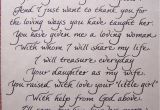 Dad I just want to thank you for
the loving ways you have taught her
You have given me a loving woman
With whom I will share my life.
I will treasure everyday
Your daughter as my wife.
You raised with love your "little girl"
With help from God above